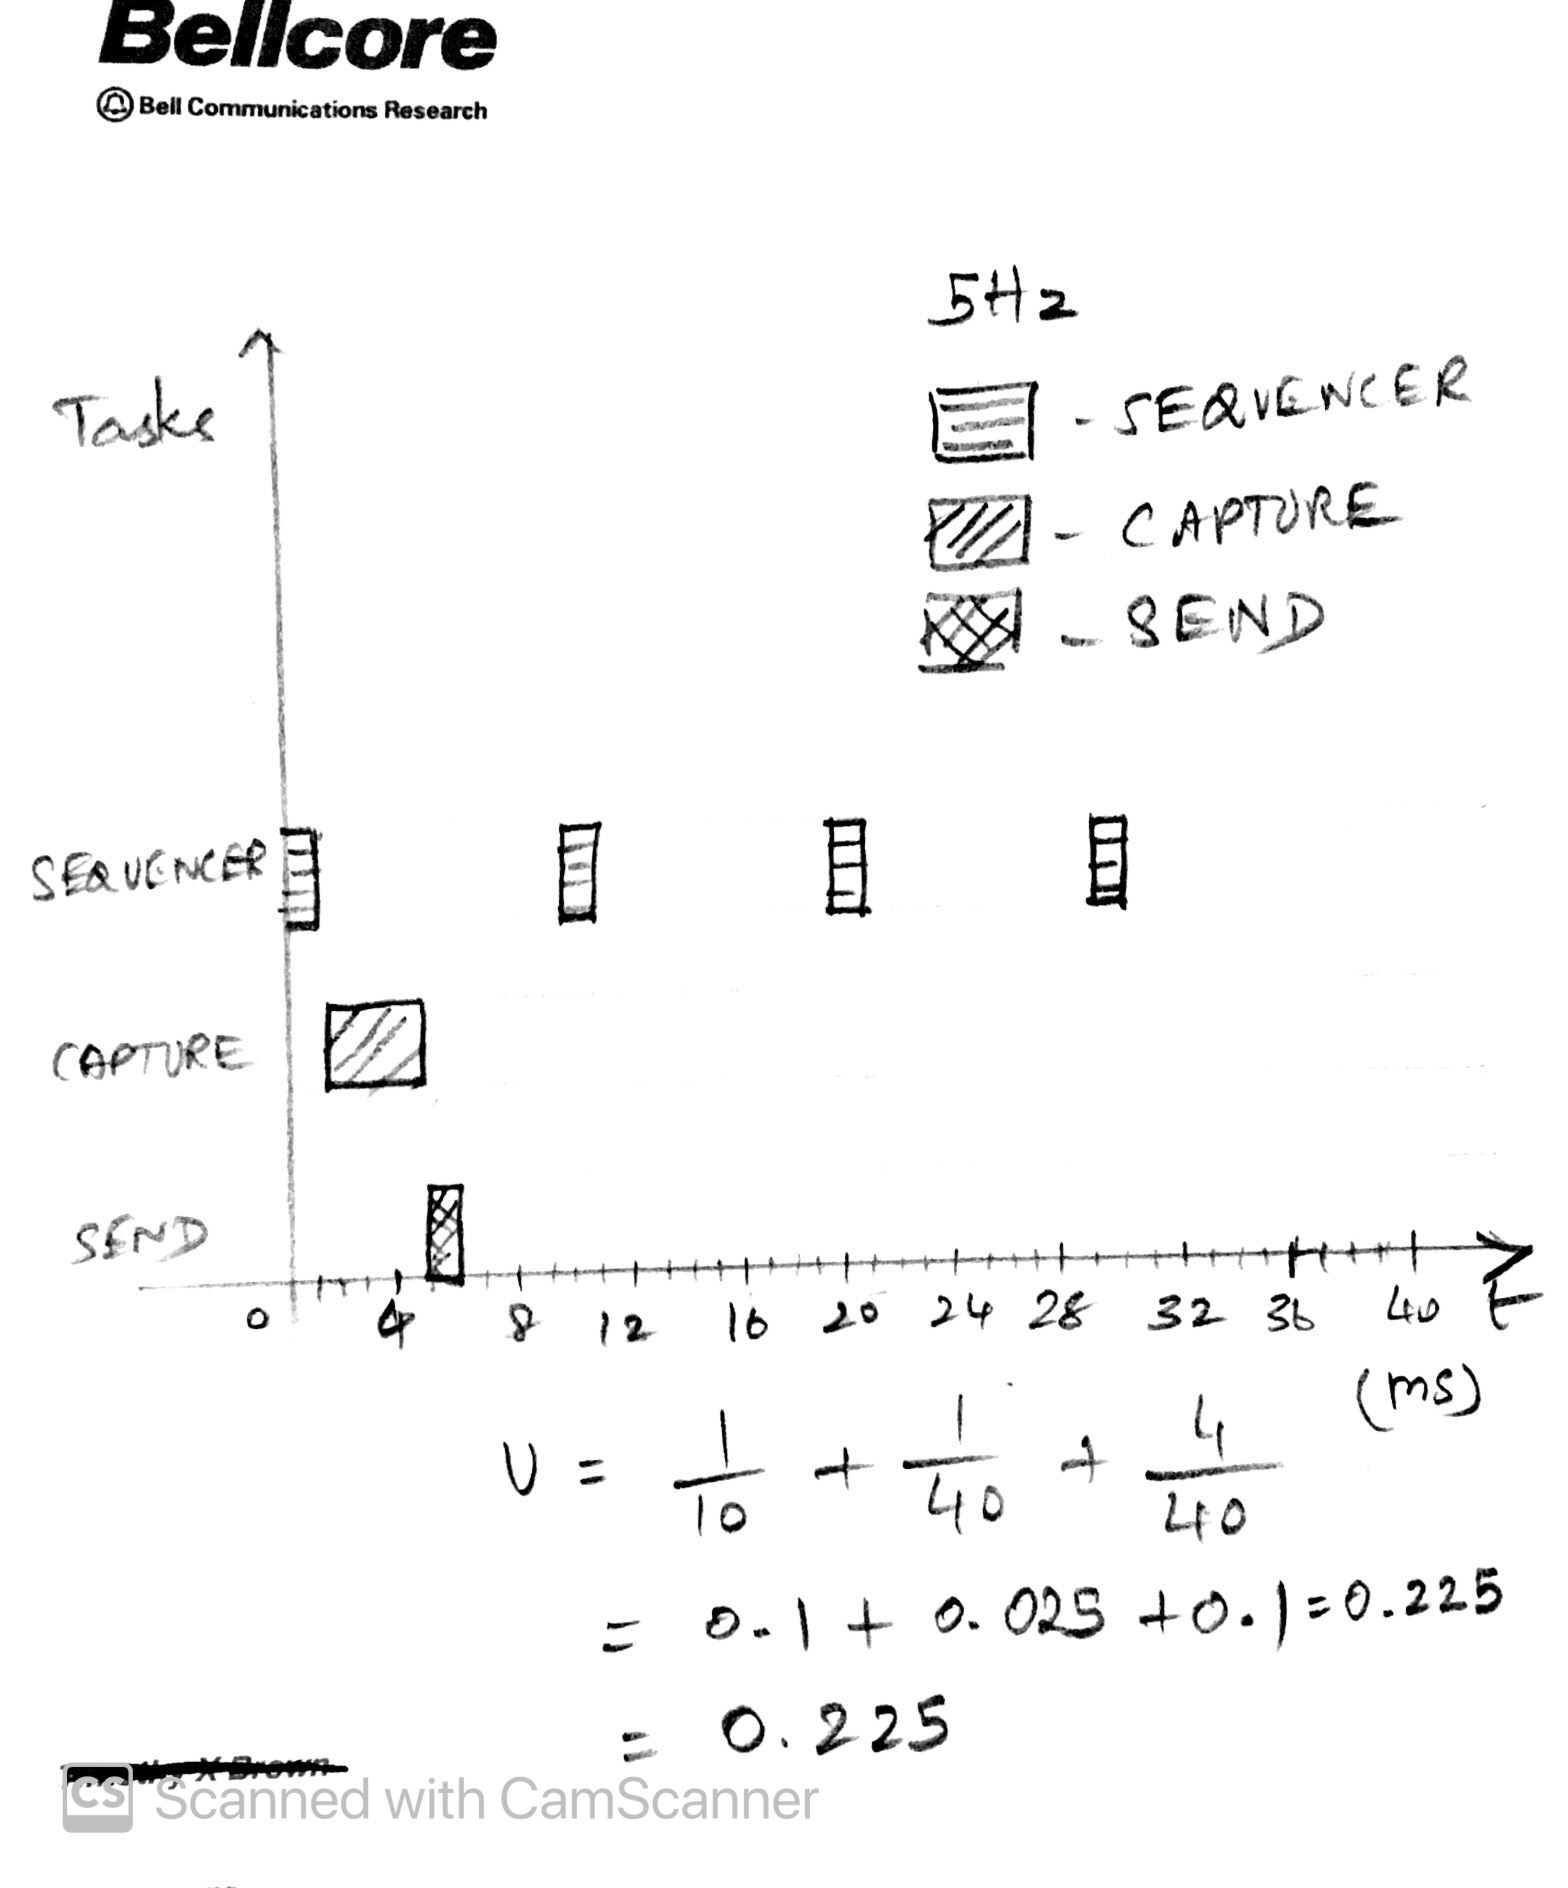 Bellcore
Bell Communications Research
5Hz
Tasks
- SEQUENCER
- CAPTURE
- SEND
SEQUENCER
CAPTURE
SEND
0 4 8 12 16 20 24 28 32 36 40 t
(ms)
U = 1/10 + 1/40 + 4/40
= 0.1 + 0.025 + 0.1 = 0.225
= 0.225
X Brown
CS Scanned with CamScanner